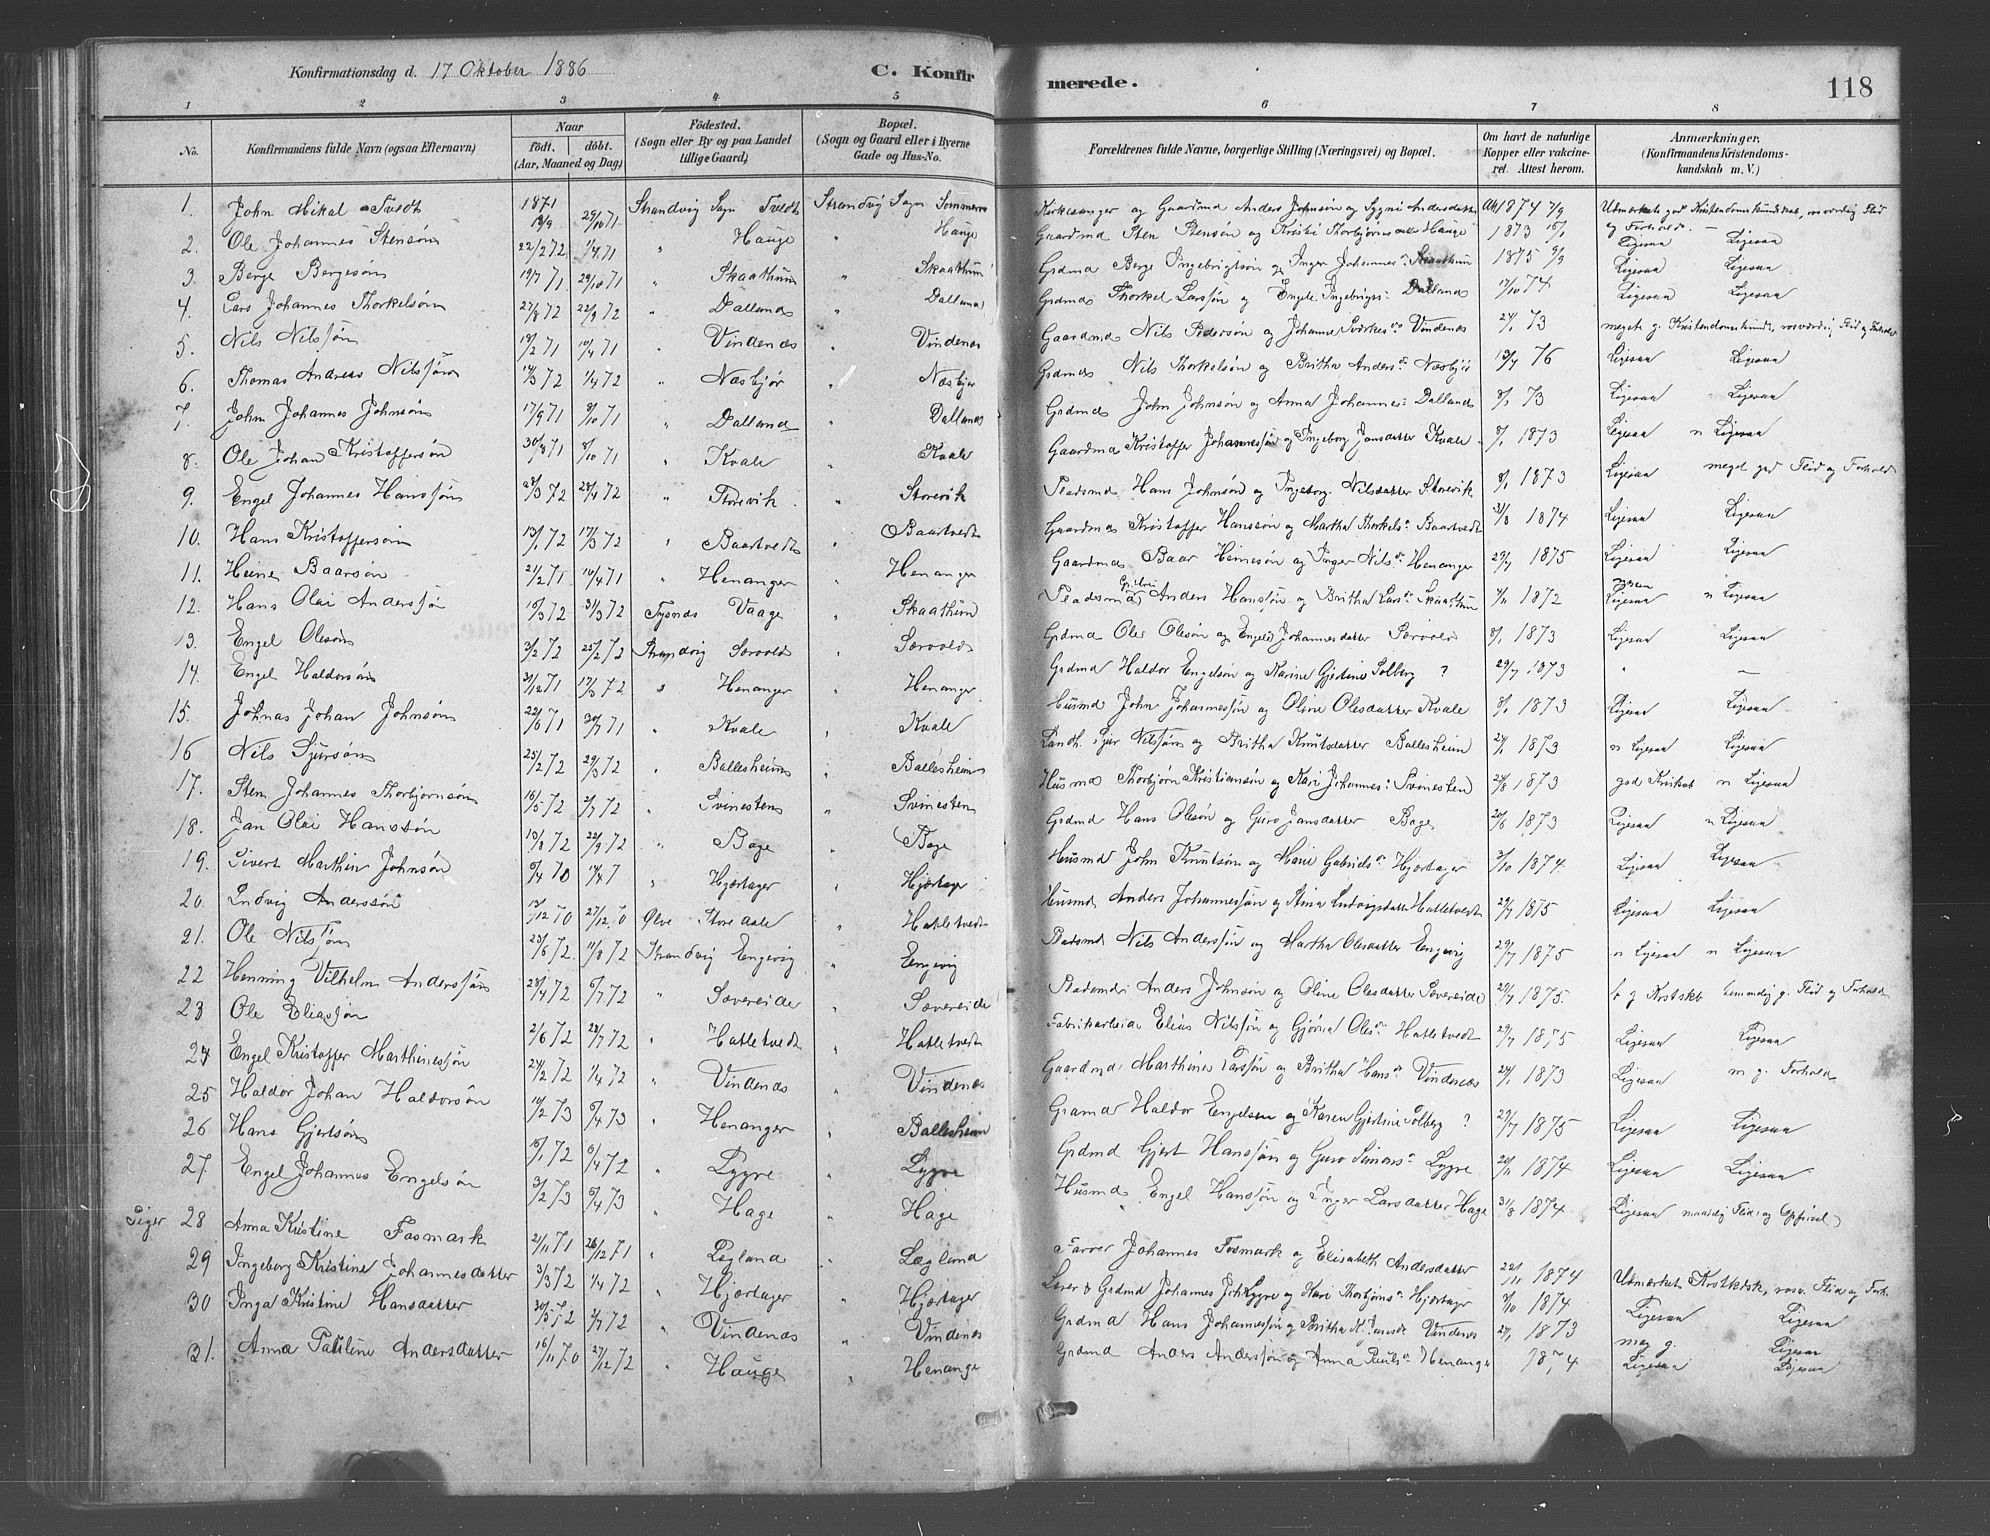 Konfirmationsdag d. 17 Oktober 1886 C. Konfirmerede. 118
1 2 3 4 5 6 7 8
No. Konfirmandens fulde Navn (ogsaa Efternavn) Naar födt. döbt. (Aar, Maaned og Dag) Födested. (Sogn eller By og paa Landet tillige Gaard) Bopæl. (Sogn og Gaard eller i Byerne Gade og Hus-No. Forældrenes fulde Navne, borgerlige Stilling (Næringsvei) og Bopæl. Om havt de naturlige Kopper eller vakcineret. Attest herom. Anmærkninger, (Konfirmandens Kristendomskundskab m. V.)
1. John Mikal Tvedt 1871 19/9 29/10 71 Strandvig Sogn Tvedt Strandvig Sogn Kirkesanger og Gaardmd Anders Johnsøn og Andersdatter 1874 7/9 Udmærket god Kristendomskundskab, rosværdig Flid og Forhold.
2. Ole Johannes Stensøn 22/2 72 1/4 71 " Hauge " Hauge Gaardmd Sten Stensøn og Kristi Thorbjørnsdatter Hauge 1873 Ligesaa Ligesaa
3. Berge Bergesøn 19/7 71 29/10 71 " Skaathun " Skaathun Grdmd Berge Ingebrigtsøn og Inger Johannes: Skaathun 1875 Ligesaa Ligesaa
4. Lars Johannes Thorkelsøn 27/8 72 22/9 72 " Dalland " Dalland Grdmd Thorkel Larssøn og Engele Ingebrigts: Dalland 17/10 74 Ligesaa Ligesaa
5. Nils Nilssøn 18/2 71 10/4 71 " Vindenæs " Vindenæs Gaardmd Nils Pedersøn og Johanne Vindenæs 24/1 73 meget g. Kristendomskundsk, rosværdig Flid og Forhold
6. Thomas Andreas Nilssøn 14/3 72 1/4 72 " Næsbjør " Næsbjør Grdmd Nils Thorkelsøn og Britha Anders: Næsbjør 13/7 76 Ligesaa Ligesaa
7. John Johannes Johnsøn 17/9 71 8/10 71 " Dalland " Dalland Grdmd John Johnsøn og Anna Johannes: Dalland 8/1 73 Ligesaa Ligesaa
8. Ole Johan Kristoffersøn 30/8 71 8/10 71 " Kvale " Kvale Gaardmd Kristoffer Johannessøn og Ingeborg Jansdatter Kvale 8/1 1873 Ligesaa " Ligesaa
9. Engel Johannes Hanssøn 28/3 72 28/4 72 " Storevik " Storevik Pladsmd Hans Johnsøn og Ingeborg Nilsdatter Storevik 8/1 1873 Ligesaa meget god Flid og Forhold
10. Hans Kristoffersøn 13/1 72 17/3 72 " Baartvedt " Baartvedt Gaardmd Kristoffer Hanssøn og Martha Thorkels: Baartvedt 31/8 1874 Ligesaa Ligesaa
11. Heine Baarsøn 21/2 71 10/4 71 " Henanger " Henanger Gaardmd Baar Heinesøn og Inger Nils: Henanger 29/7 1875 Ligesaa Ligesaa
12. Hans Olai Anderssø 15/3 72 31/3 72 Tysnæs Vaage " Skaathun Pladsmd Anders Hanssøn og Britha Lars: Skaathun 1872 Ligesaa " Ligesaa
13. Engel Olesøn 3/2 72 25/2 72 Strandvig Sørvold " Sørvold Grdmd Ole Olesøn og Engel Johannesdatter Sørvold 8/1 1873 Ligesaa Ligesaa
14. Engel Haldorsøn 31/12 71 17/3 72 " Henanger " Henanger Grdmd Haldor Engelsøn og Karine Gjertine Solberg ? 29/7 1873 " —
15. Johnas Johan Johnsøn 22/6 71 30/7 71 " Kvale " Kvale Husmd John Johannessøn og Oline Olesdatter Kvale 8/1 1873 Ligesaa Ligesaa
16 Nils Sjursøn 25/2 72 29/3 72 " Ballesheim " Ballesheim Landh. Sjur Nilssøn og Britha Knutsdatter Ballesheim 24/1 1873 " Ligesaa Ligesaa
17. Sten Johannes Thorbjørnsøn 16/5 72 2/7 72 " Svinesten " Svinesten Husmd Thorbjørn Kristiansøn og Kari Johannes: Svinesten 28/8 1873 god Krskab " Ligesaa
18. Jan Olai Hanssøn 13/8 72 22/9 72 " Bage " Bage Grdmd Hans Olesøn og Guro Jansdatter Bage 20/6 1873 Ligesaa " Ligesaa
19. Sivert Marthin Johnsøn 5/4 70 17/4 7 " Hjørtager " Hjørtager Husmd John Knutsøn og Marie Gabriels: Hjørtager 3/10 1874. Ligesaa Ligesaa
20. Ludvig Anderssøn 13/12 70 27/12 70 Ølve " Hatletvedt Husmd Anders Johannessøn og Stina Ludvigsdatter Hatletvedt 29/7 1875 Ligesaa Ligesaa
21. Ole Nilssøn 23/6 72 11/8 72 Strandvig Engevig " Engevig Pladsmd Nils Anderssøn og Martha Olesdatter Engevig 29/7 1875 " Ligesaa " Ligesaa
22 Henning Vilhelm Anderssøn 28/4 72 5/7 72 " Sævereide " Sævereide Pladsmd Anders Johnsøn og Oline Olesdatter Sævereide 29/7 1875. Flid og Forhold
23 Ole Eliassøn 2/6 72 28/7 72 " Hatletvedt " Hatletvedt Fabrikarbeide Elias Nilssøn og Gjøria Oles: Hatletvedt 29/7 1875 Ligesaa Ligesaa
24 Engel Kristoffer Marthinessøn 24/2 72 1/4 72 " Vindenæs " Vindenæs Gaardmd Marthines Larssøn og Britha Hans: Vindenæs 24/1 1873 Ligesaa m g. Forhold
25 Haldor Johan Haldorsøn 10/2 73 5/4 73 " Henanger " Henanger Grdmd Haldor Engelsen og Karen Gjertine Solberg ? 29/7 1875 Ligesaa Ligesaa
26 Hans Gjertsøn 15/1 72 5/4 72 " Lygre " Ballesheim Grdmd Gjert Hanssøn og Guro Simons: Lygre 20/11 1874 Ligesaa Ligesaa
27. Engel Johannes Engelsøn 3/2 73 5/4 73 " Hage " Lygre Husmd Engel Hanssøn og Inger Larsdatter Hage 31/8 1874 Ligesaa Flid og Opførsel
Piger 28 Anna Kristine Fosmark 2/11 71 26/12 71 " Legland " Hage Farver Johannes Fosmark og Elisabeth Andersdatter 22/11 1874 Udmærket Krstkdsk, rosv. Flid og Forh.
29 Ingeborg Kristine Johannesdatter 3/3 72 1/4 72 " Hjørtager " Lægland Lærer & Grdmd Johannes Lygre og Kari Thorbjørns: Hjørtager 3/10 1874 Ligesaa Ligesaa
30 Inga Kristine Hansdatter 30/5 72 7/7 72 " Vindenæs " Hjørtager Grdmd Hans Johannessøn og Britha Vindenæs 24/1 1873 meg g. Ligesaa
31. Anna Pauline Andersdatter 16/11 70 27/12 72 " Hauge " Vindenæs Grdmd Anders Anderssøn og Anna Pauls: Henanger 1874 Ligesaa Ligesaa
" Henanger